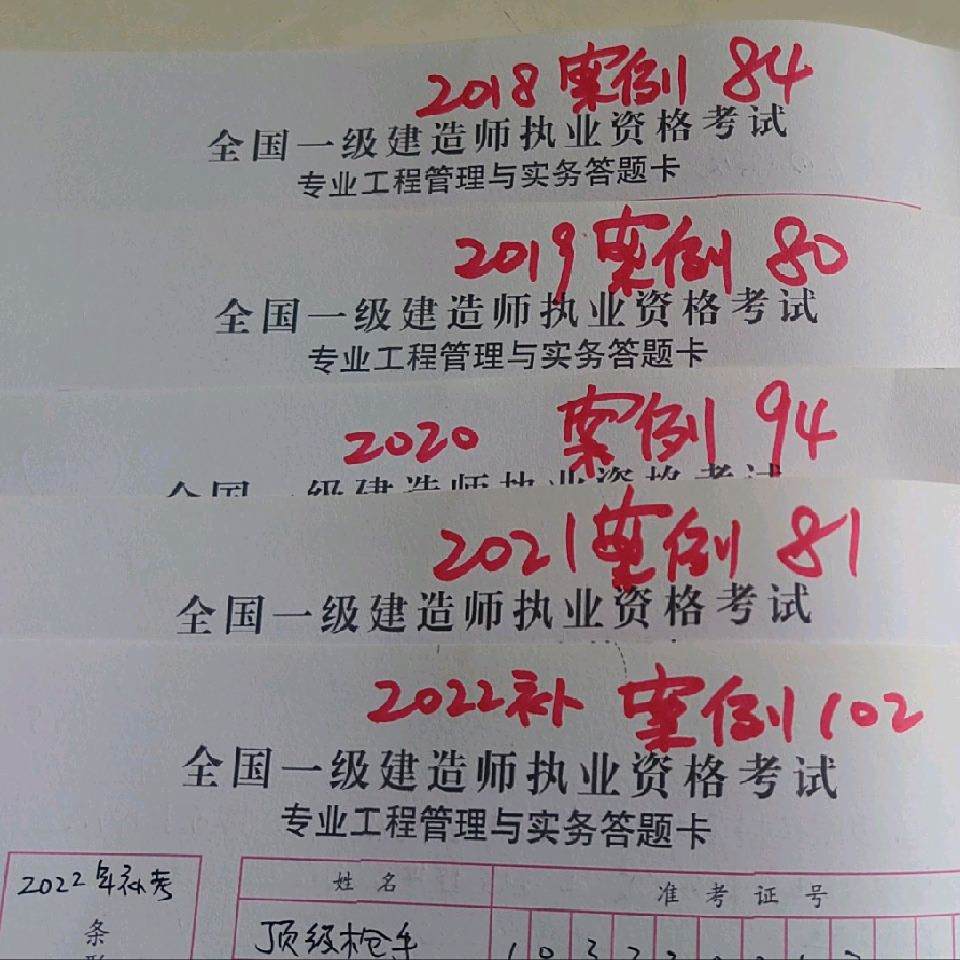 2018 案例 84
全国一级建造师执业资格考试
专业工程管理与实务答题卡
2019 案例 80
全国一级建造师执业资格考试
专业工程管理与实务答题卡
2020 案例 94
全国一级建造师执业资格考试
2021 案例 81
全国一级建造师执业资格考试
2022补 案例 102
全国一级建造师执业资格考试
专业工程管理与实务答题卡
2022年补考
姓名
准考证号
条
顶级枪手